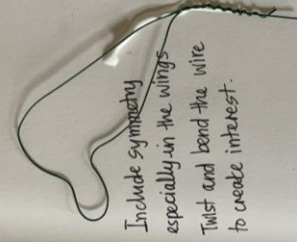 Include symmetry
especially in the wings
Twist and bend the wire
to create interest.